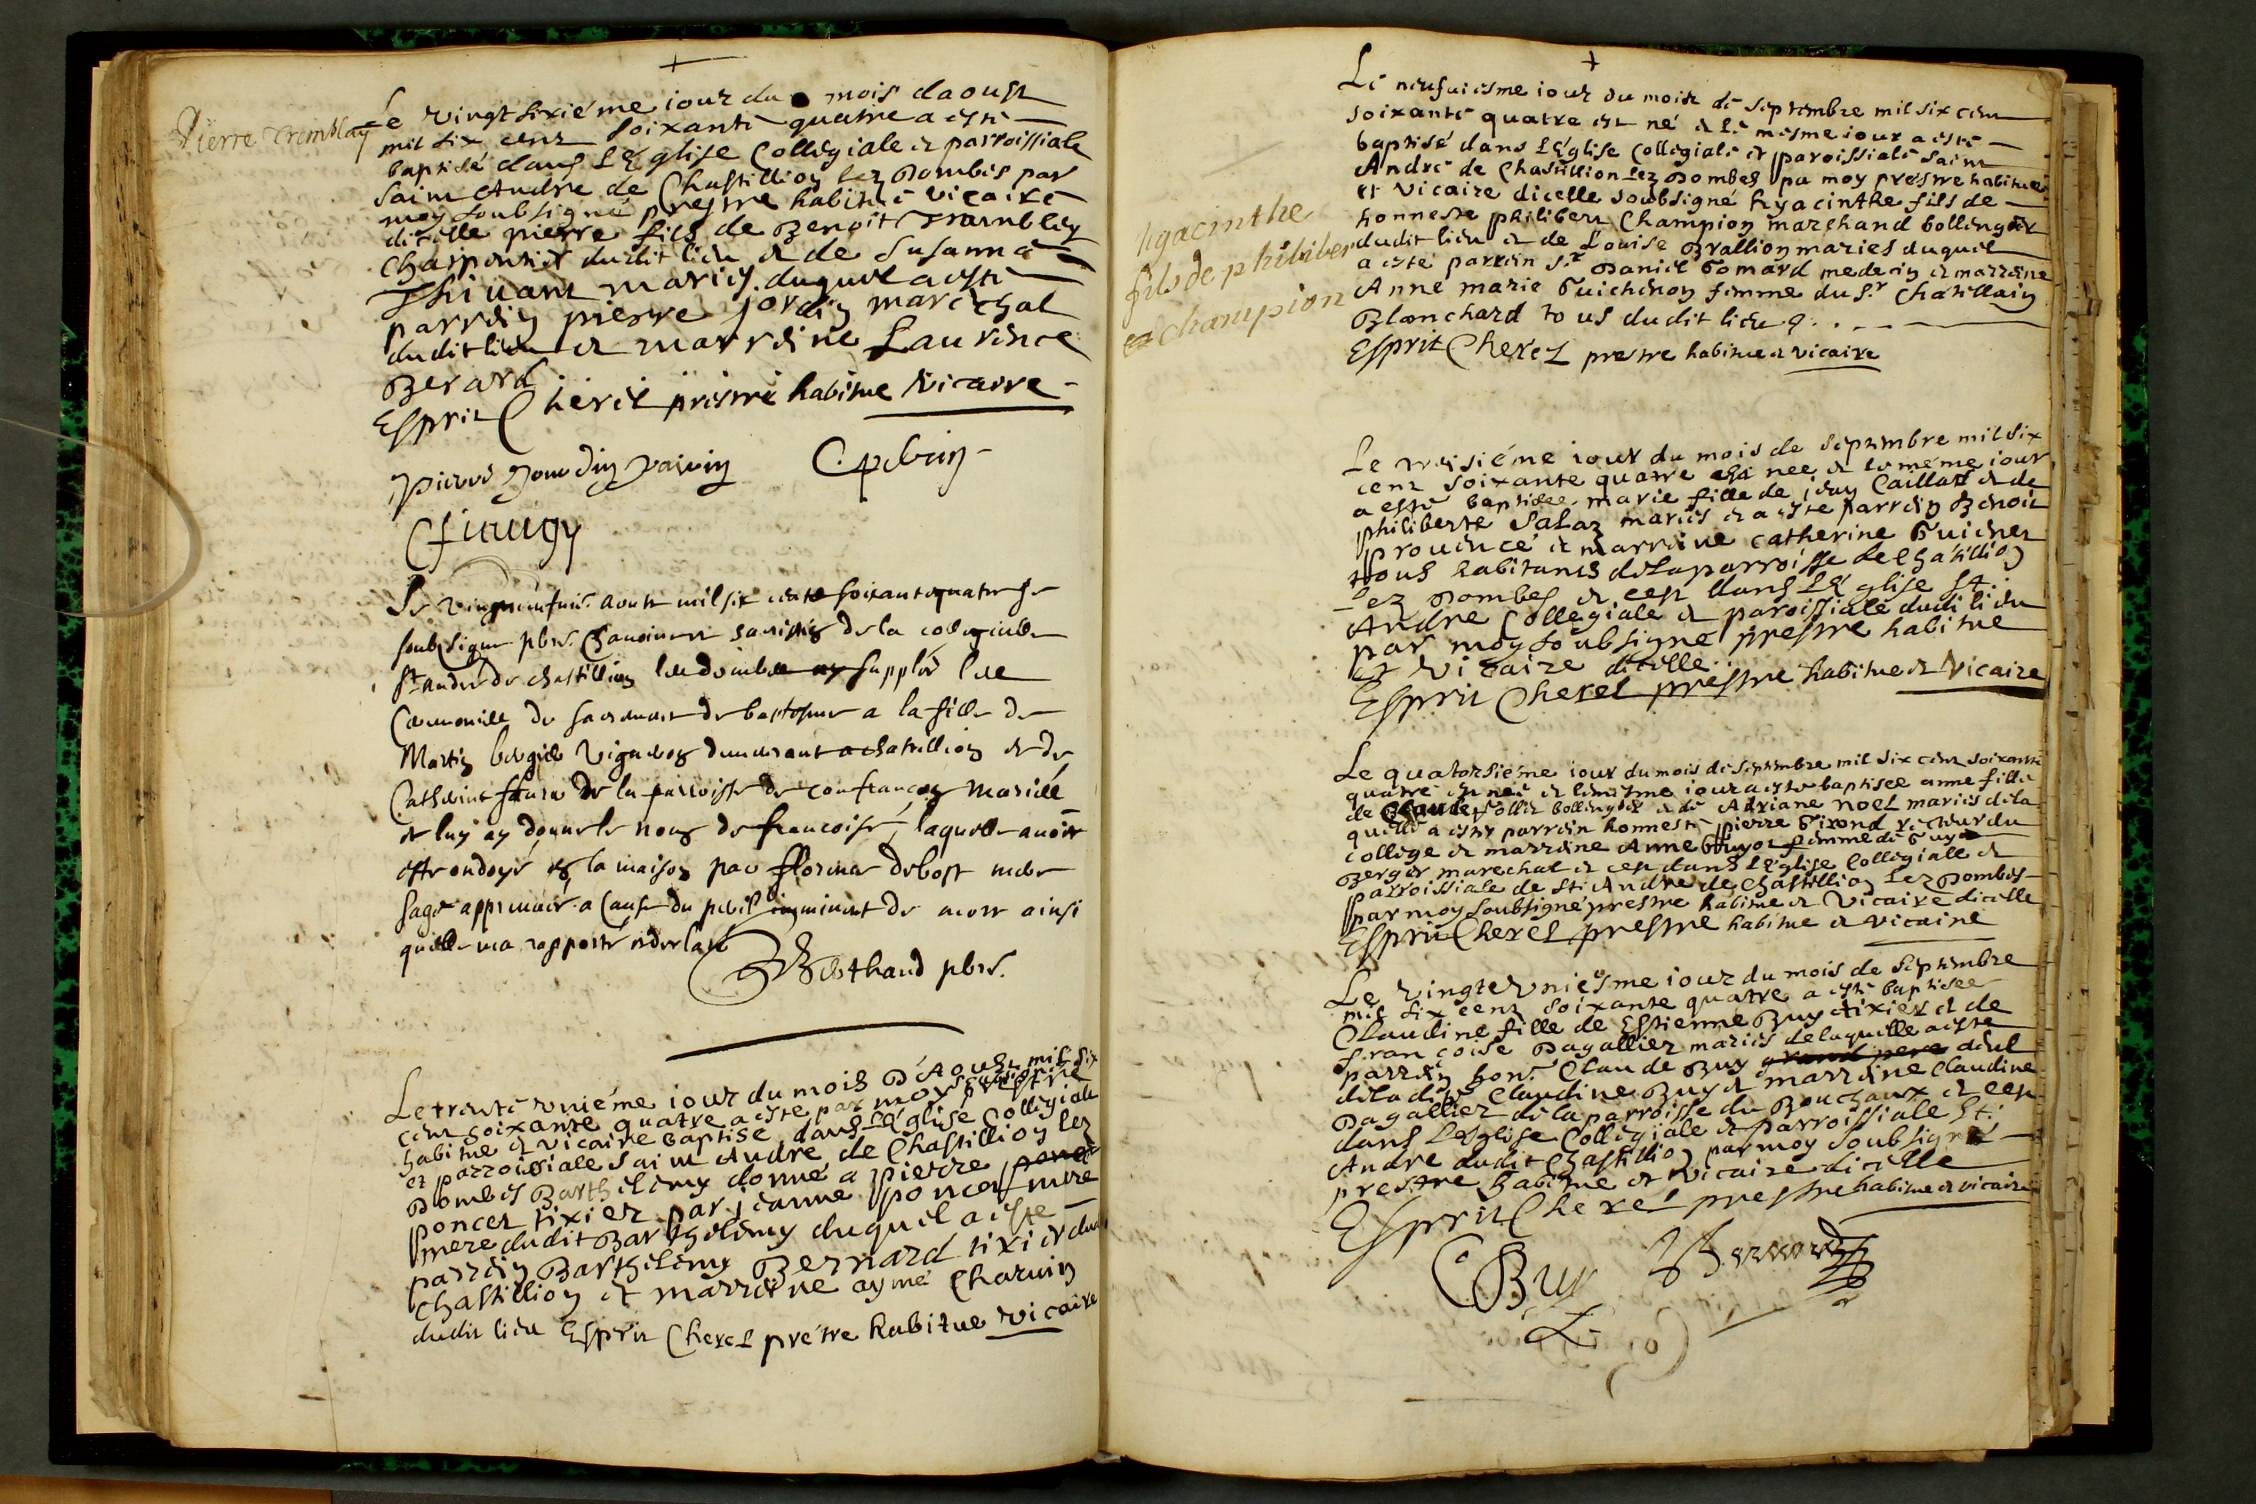 Pierre Tremblay
Le vingt sixiéme iour du mois daoust
mil six cent soixante quatre a esté
baptisé dans LEglise Collegiale et parroissiale
Saint André de Chastillion lez Dombes par
moy soubsigné prestre habitué vicaire
dicelle pierre fils de Benoit Trambley
Charpentier dudit lieu et de Susanne
Thivant mariés duquel a esté
parrein pierre jordin marechal
dudit lieu et marreine Laurence
Berard
Esprit Cherel prestre habitue vicaire
Pierre Jourdin Parrin
soubsigne pbre Chanoine sacristin de la collegialle
St André de chastillion les dombes ay supplée les
Ceremonies du sacrement de baptesme a la fille de
Martin vigneron demeurant a chatillion et de
Catherine de la parroisse de confrancon mariés
et luy ay donné le nom de francoise, laquelle avoit
esté ondoyé en la maison par debost mere
sage approuvée a Cause du peril imminent de mort ainsi
quelle ma rapporté
Berthaud pbre.
Le trente vniéme iour du mois D'Aoust mil six
cent soixante quatre a esté par moy soubsigné prestre
habitue et vicaire baptisé dans LEglise Collegiale
et parroissiale saint André de Chastillion lez
Dombes Barthelemy donné a Pierre
poncet tixier par jeanne poncet mere
mere dudit Barthelemy duquel a esté
parrein Barthelemy Bernard tixier dud
Chastillion et marreine aymé Charvin
dudit lieu Esprit Cherel prétre habitue vicaire
hyacinthe
fils de philibert
champion
Le neufuiesme iour du mois de septembre mil six cent
soixante quatre est né et le mesme iour a esté
baptisé dans LEglise Collegiale et paroissiale saint
André de Chastillion lez Dombes par moy prestre habitue
et vicaire dicelle soubsigné hyacinthe fils de
honneste philibert Champion marchand bollenger
dudit lieu et de Louise Brallion mariés duquel
a esté parrein sr Daniel Gomard medecin et marreine
Anne marie Guichenon femme du sr Chatillain
Blanchard tous dudit lieu
Esprit Cherel prestre habitue et vicaire
Le treisiéme iour du mois de septembre mil six
cent soixante quatre est née et le méme iour
a esté baptisée marie fille de jean Caillat et de
philiberte Salaz mariés et a esté parrein Benoit
prouence et marreine catherine Guichet
tous habitants de la parroisse de Chatillion
lez Dombes et cest dans LEglise St.
André Collegiale et paroissiale dudit lieu
par moy soubsigné prestre habitue
et vicaire dicelle
Esprit Cherel prestre habitue et vicaire
Le quatorsiéme iour du mois de septembre mil six cent soixante
quatre est née et le mésme iour a esté baptisée anne fille
de Claude Collet bollenger et de Adriane noel mariés de la
quelle a esté parrein honneste pierre Girond recteur du
college et marreine Anne femme de Guy
Berger marechal et cest dans LEglise Collegiale et
parroissiale de St André de Chastillion lez Dombes
par moy soubsigné prestre habitue et vicaire dicelle
Esprit Cherel prestre habitue et vicaire
Le vingt et vniesme iour du mois de septembre
mil six cent soixante quatre a esté baptisée
Claudine fille de Estienne Buy tixier et de
francoise Dagallier mariés de laquelle a esté
parrein hon. Claude Buy grand pere aieul
de ladite Claudine Buy et marreine Claudine
Dagallier de la parroisse du Bouchaux et cest
dans LEglise Collegiale et parroissiale St.
André dudit Chastillion par moy soubsigné
prestre habitue et vicaire dicelle
Esprit Cherel prestre habitue et vicaire
C Buy Bernard